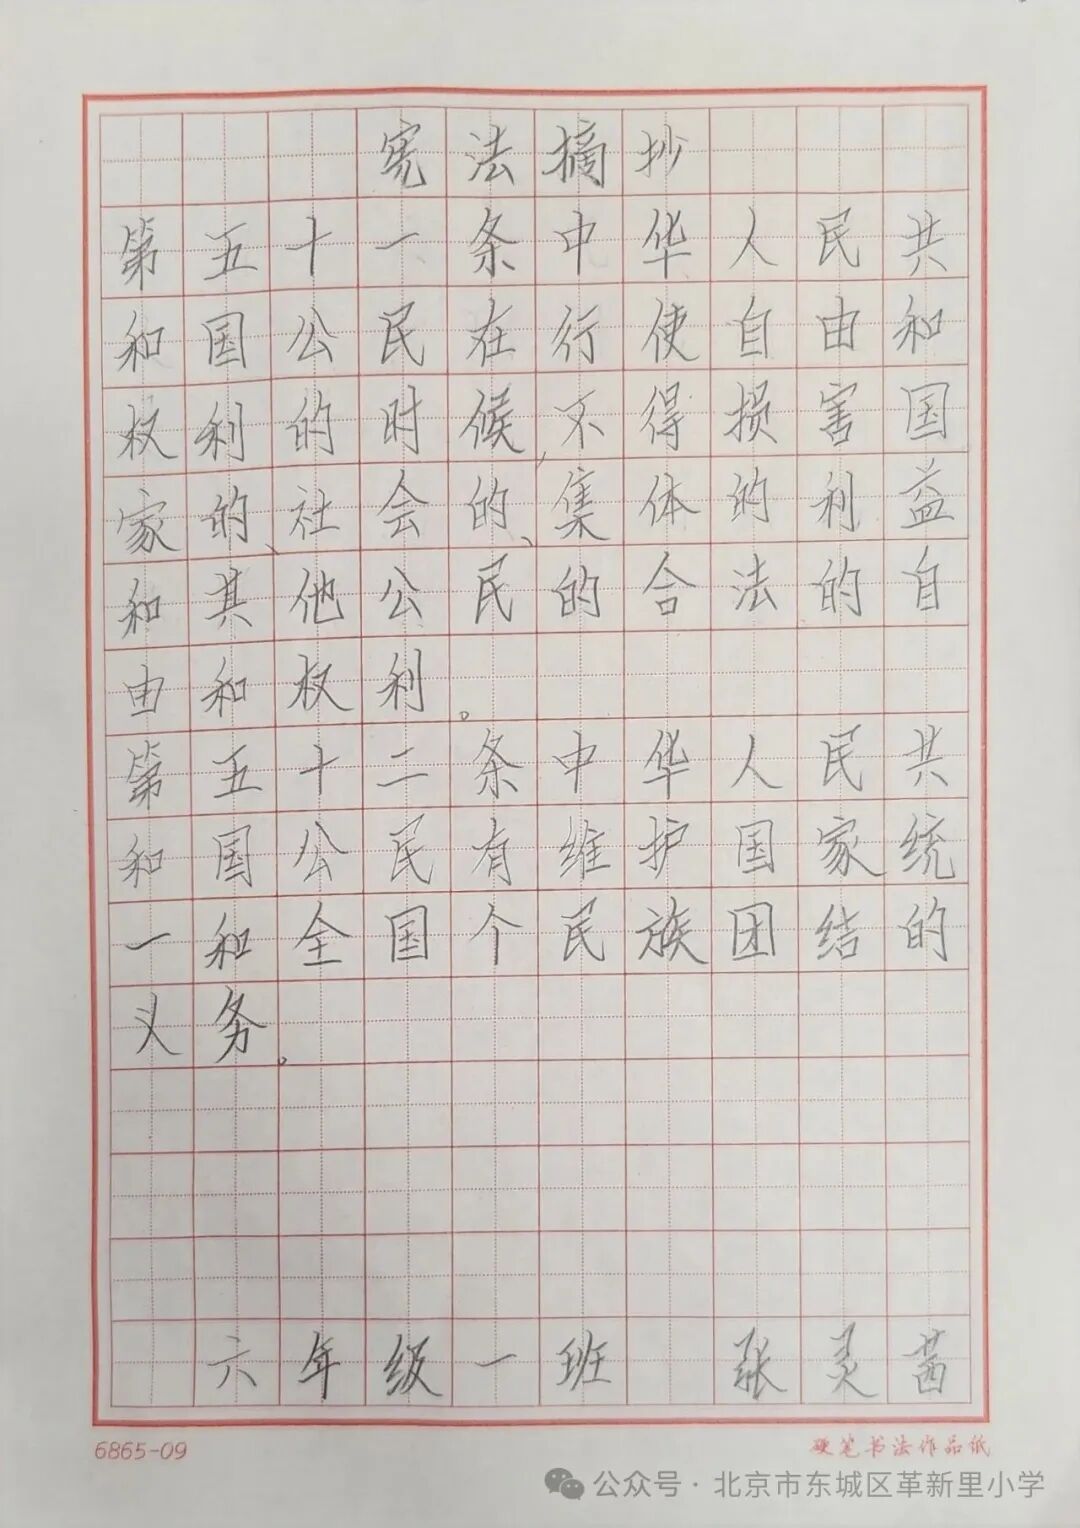 宪法摘抄
第五十一条中华人民共
和国公民在行使自由和
权利的时候,不得损害国
家的、社会的、集体的利益
和其他公民的合法的自
由和权利。
第五十二条中华人民共
和国公民有维护国家统
一和全国个民族团结的
义务。
六年级一班 张灵茜
6865-09 硬笔书法作品纸
公众号·北京市东城区革新里小学